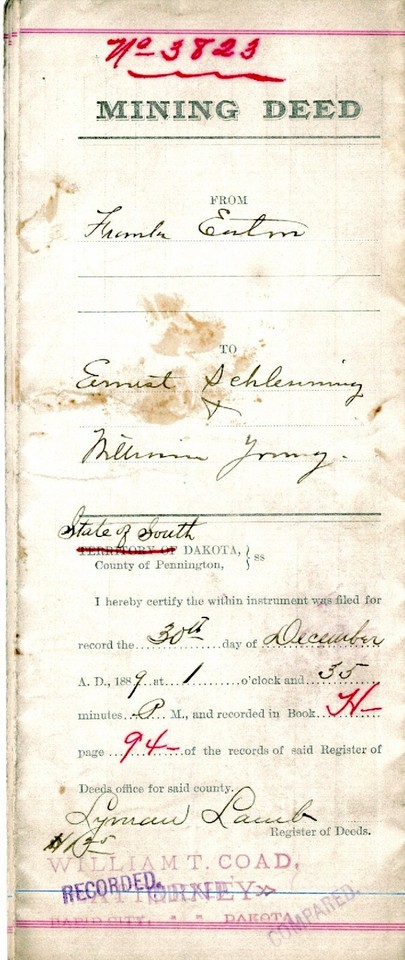 No 3823
MINING DEED
FROM
Eaton
TO
Ernest Schleuning
&
William Young.
State of South
TERRITORY OF DAKOTA, }
County of Pennington, } ss
I hereby certify the within instrument was filed for
record the 30th day of December
A. D., 1889 at 1 o'clock and 35
minutes P M., and recorded in Book H
page 94 of the records of said Register of
Deeds office for said county.
Lyman Lamb
Register of Deeds.
WILLIAM T. COAD,
RECORDED.
ATTORNEY
RAPID CITY, " " DAKOTA
COMPARED.